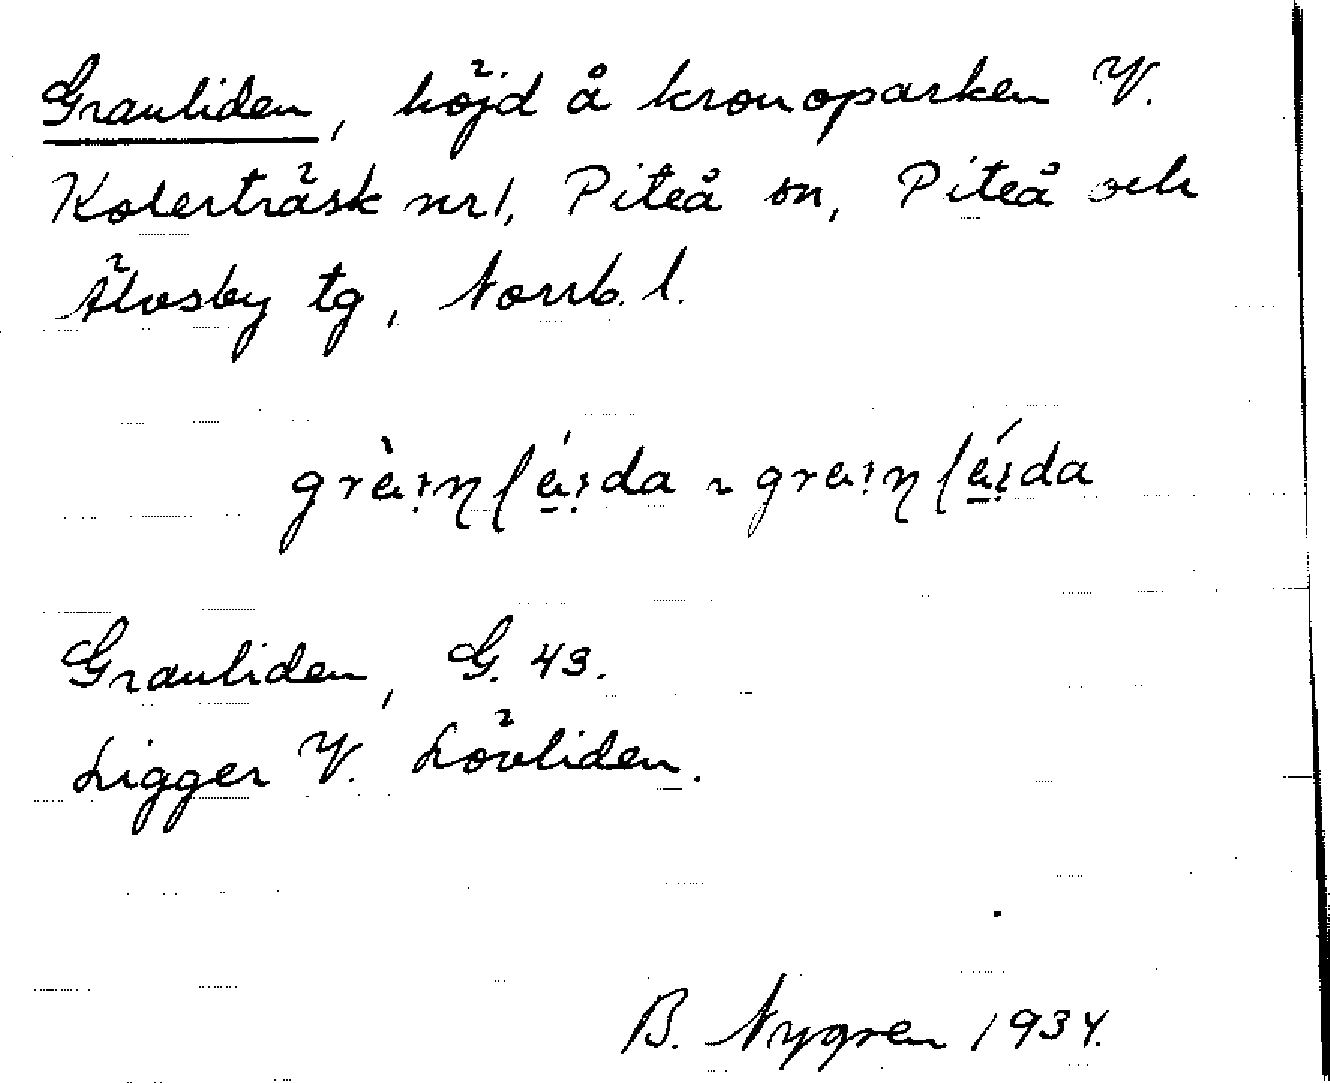 Granliden, höjd å kronoparken V.
Koler­träsk nr 1, Piteå sn, Piteå och
Älvsby tg, Norrb. l.
Granliden, G. 43.
Ligger V. Lövliden.
B. Nygren 1934.